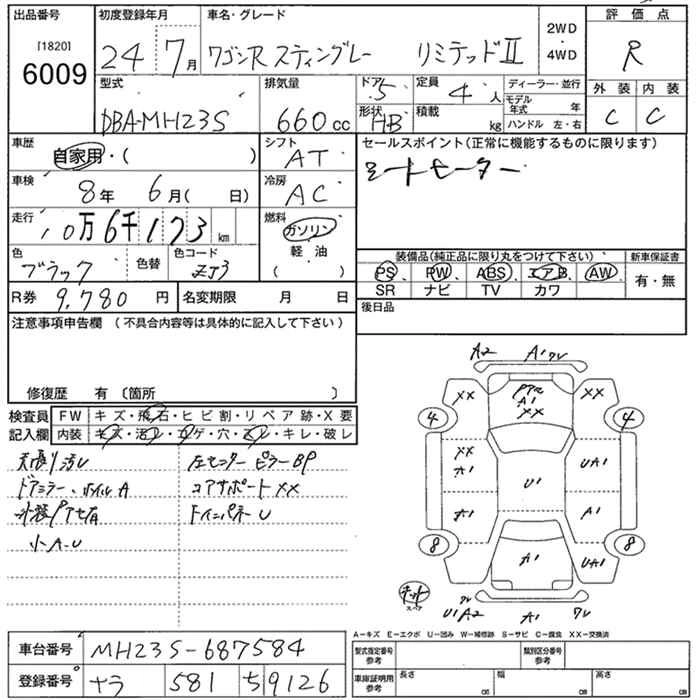 出品番号 初度登録年月 車名・グレード 2WD 評価点
[1820] 24 7月 ワゴンR スティングレー リミテッドⅡ 4WD R
6009
型式 排気量 ドア 5 定員 4人 ディーラー・並行 外装 内装
DBA-MH23S 660cc 形状 HB 積載 kg モデル年式 年 C C
ハンドル 左・右
車歴 自家用・( ) シフト AT セールスポイント(正常に機能するものに限ります)
車検 8年 6月( 日) 冷房 AC シートヒーター
走行 10万6千173km 燃料 ガソリン
軽油
( )
色 ブラック 色替 色コード ZJ3
装備品(純正品に限り丸をつけて下さい) 新車保証書
PS PW ABS エアB AW 有・無
SR ナビ TV カワ
R券 9,780円 名変期限 月 日 後日品
注意事項申告欄(不具合内容等は具体的に記入して下さい)
修復歴 有〔箇所 〕
検査員 FW キズ・飛石・ヒビ割・リペア跡・X要
記入欄 内装 キズ・汚レ・コゲ・穴・スレ・キレ・破レ
天張り汚レ 左センターピラーBP
ドアミラー、ホイルA コアサポートXX
外装小キズ有 トランパネU
小A・U
A2 A1
XX A1 XX XX
4 4
XX A1 U1 UA1
A1 A1
8 A1 UA1 8
スペア
U1A2 A1
A-キズ E-エクボ U-凹み W-補修跡 S-サビ C-腐食 XX-交換済
車台番号 MH23S-687584 型式指定番号 参考 類別区分番号 参考
登録番号 ナラ 581 ち 9126 車庫証明用 参考 長さ cm 幅 cm 高さ cm